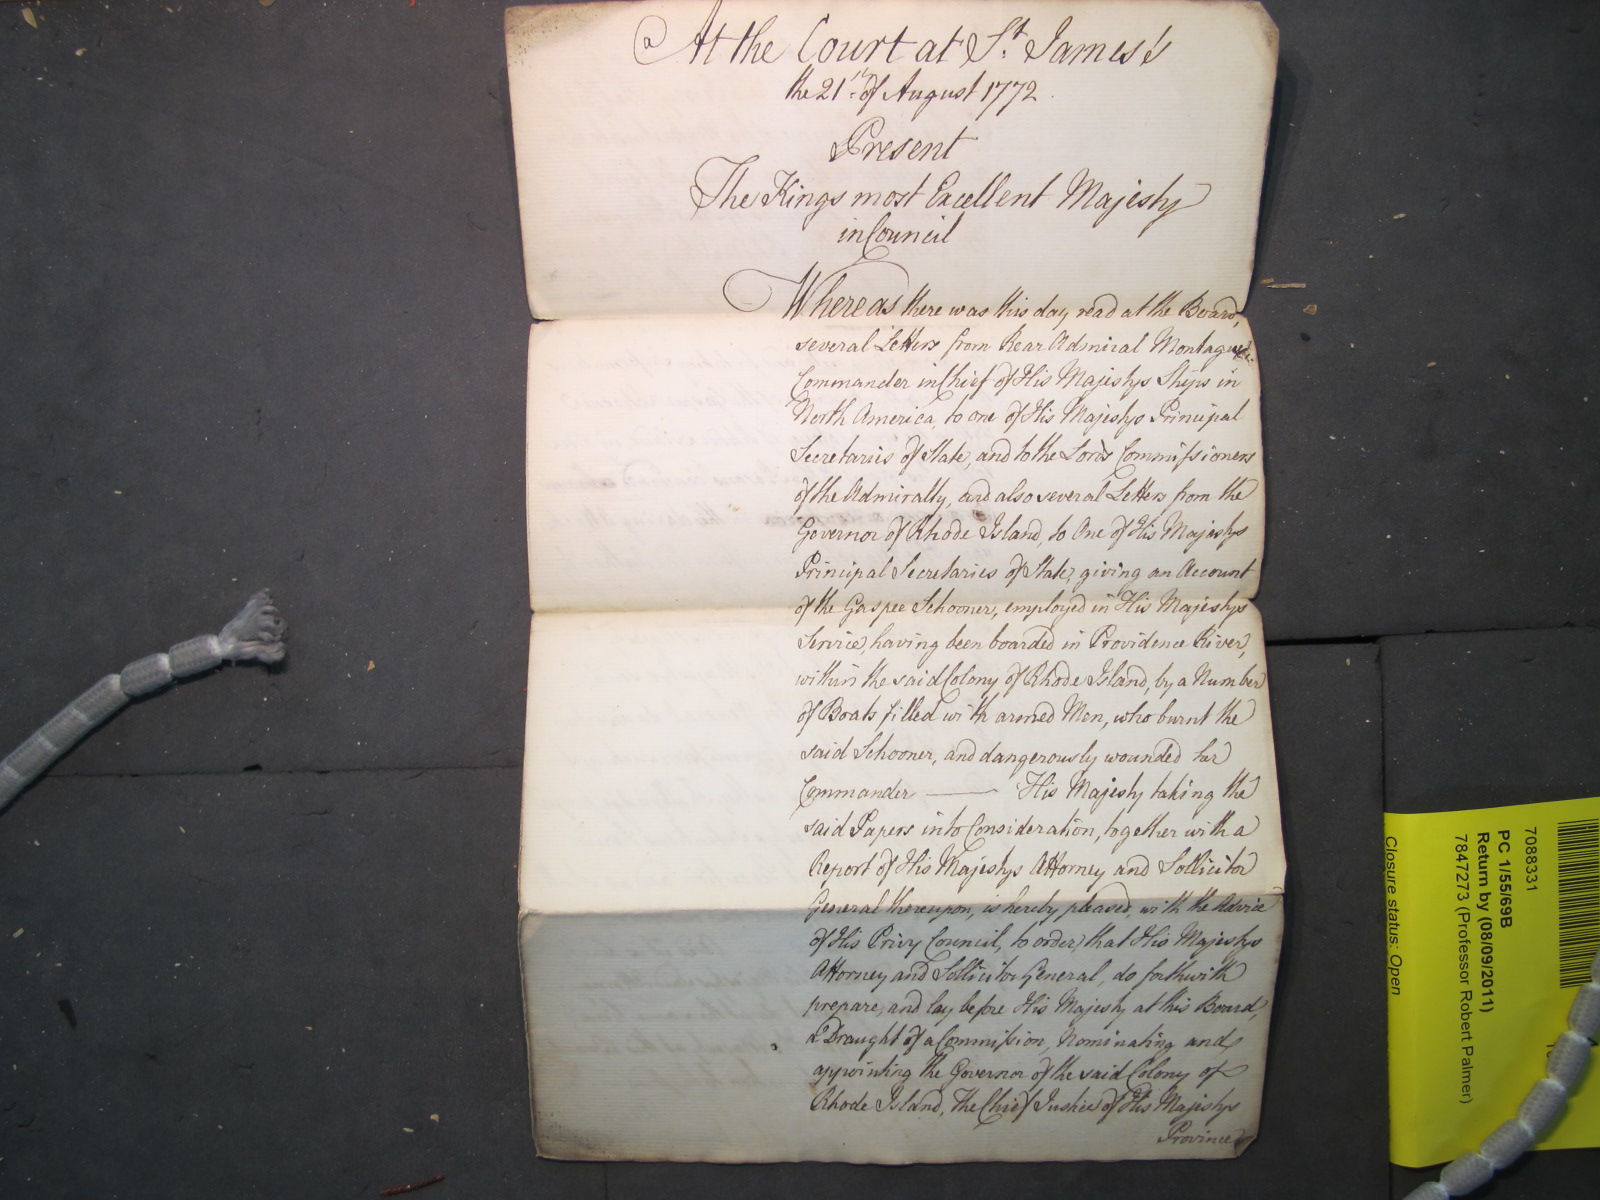 At the Court at St. James's
the 21st. of August 1772.
Present
The Kings most Excellent Majesty
in Council
Whereas there was this day read at the Board,
several Letters from Rear Admiral Montague
Commander in Chief of His Majestys Ships in
North America, to one of His Majestys Principal
Secretaries of State, and to the Lords Commissioners
of the Admiralty, and also several Letters from the
Governor of Rhode Island, to One of His Majestys
Principal Secretaries of State, giving an Account
of the Gaspee Schooner, employed in His Majestys
Service, having been boarded in Providence River,
within the said Colony of Rhode Island, by a Number
of Boats filled with armed Men, who burnt the
said Schooner, and dangerously wounded her
Commander — His Majesty taking the
said Papers into Consideration, together with a
Report of His Majestys Attorney and Sollicitor
General thereupon, is hereby pleased, with the Advice
of His Privy Council, to order, that His Majestys
Attorney and Sollicitor General, do forthwith
prepare, and lay before His Majesty at this Board,
a Draught of a Commission, Nominating and
appointing the Governor of the said Colony of
Rhode Island, The Chief Justice of His Majestys
Province
7088331
PC 1/55/69B
Return by (08/09/2011)
7847273 (Professor Robert Palmer)
Closure status: Open